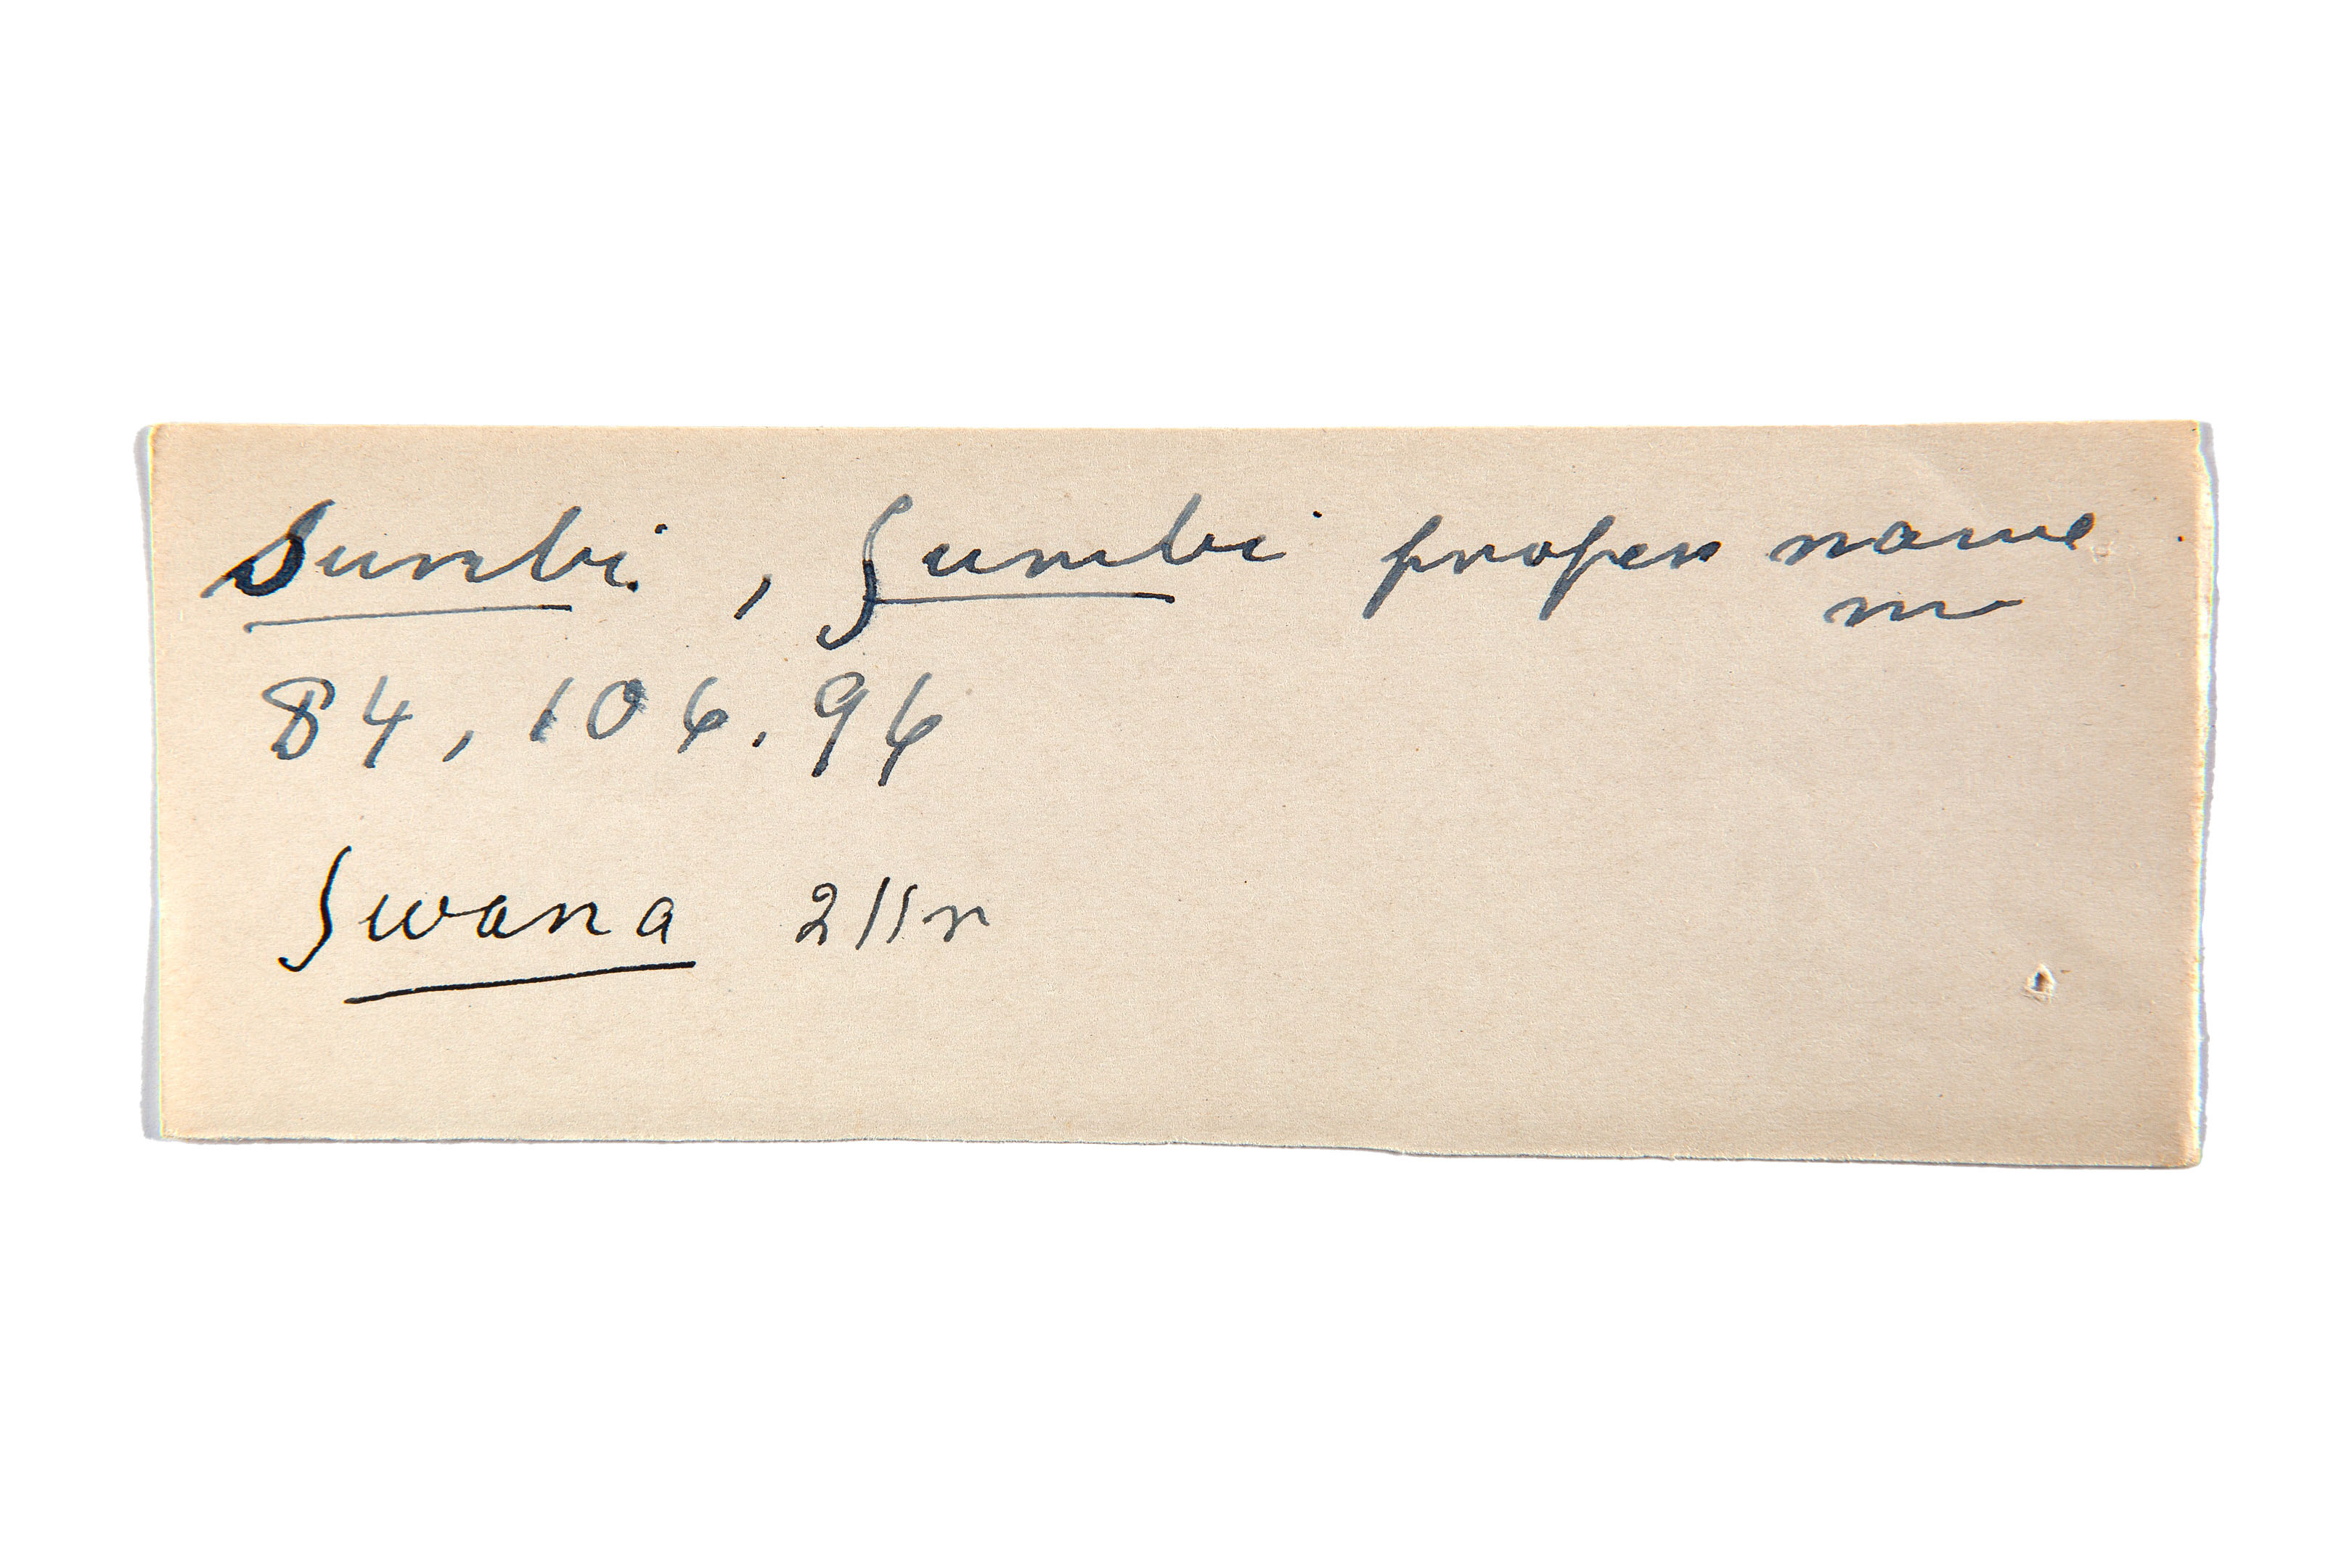 Sumbi, ʃumbi proper name
m
84, 106. 94
ʃwana 211n